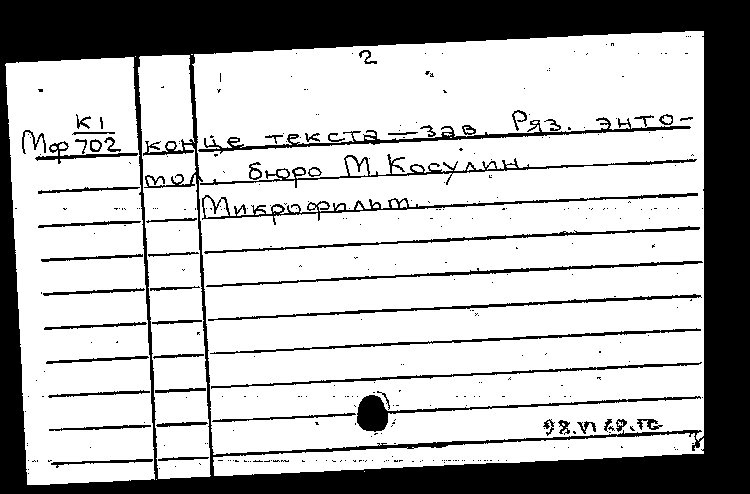 2
Мф К1/702 конце текста — зав. Ряз. энто-
мол. бюро М. Косулин.
Микрофильм.